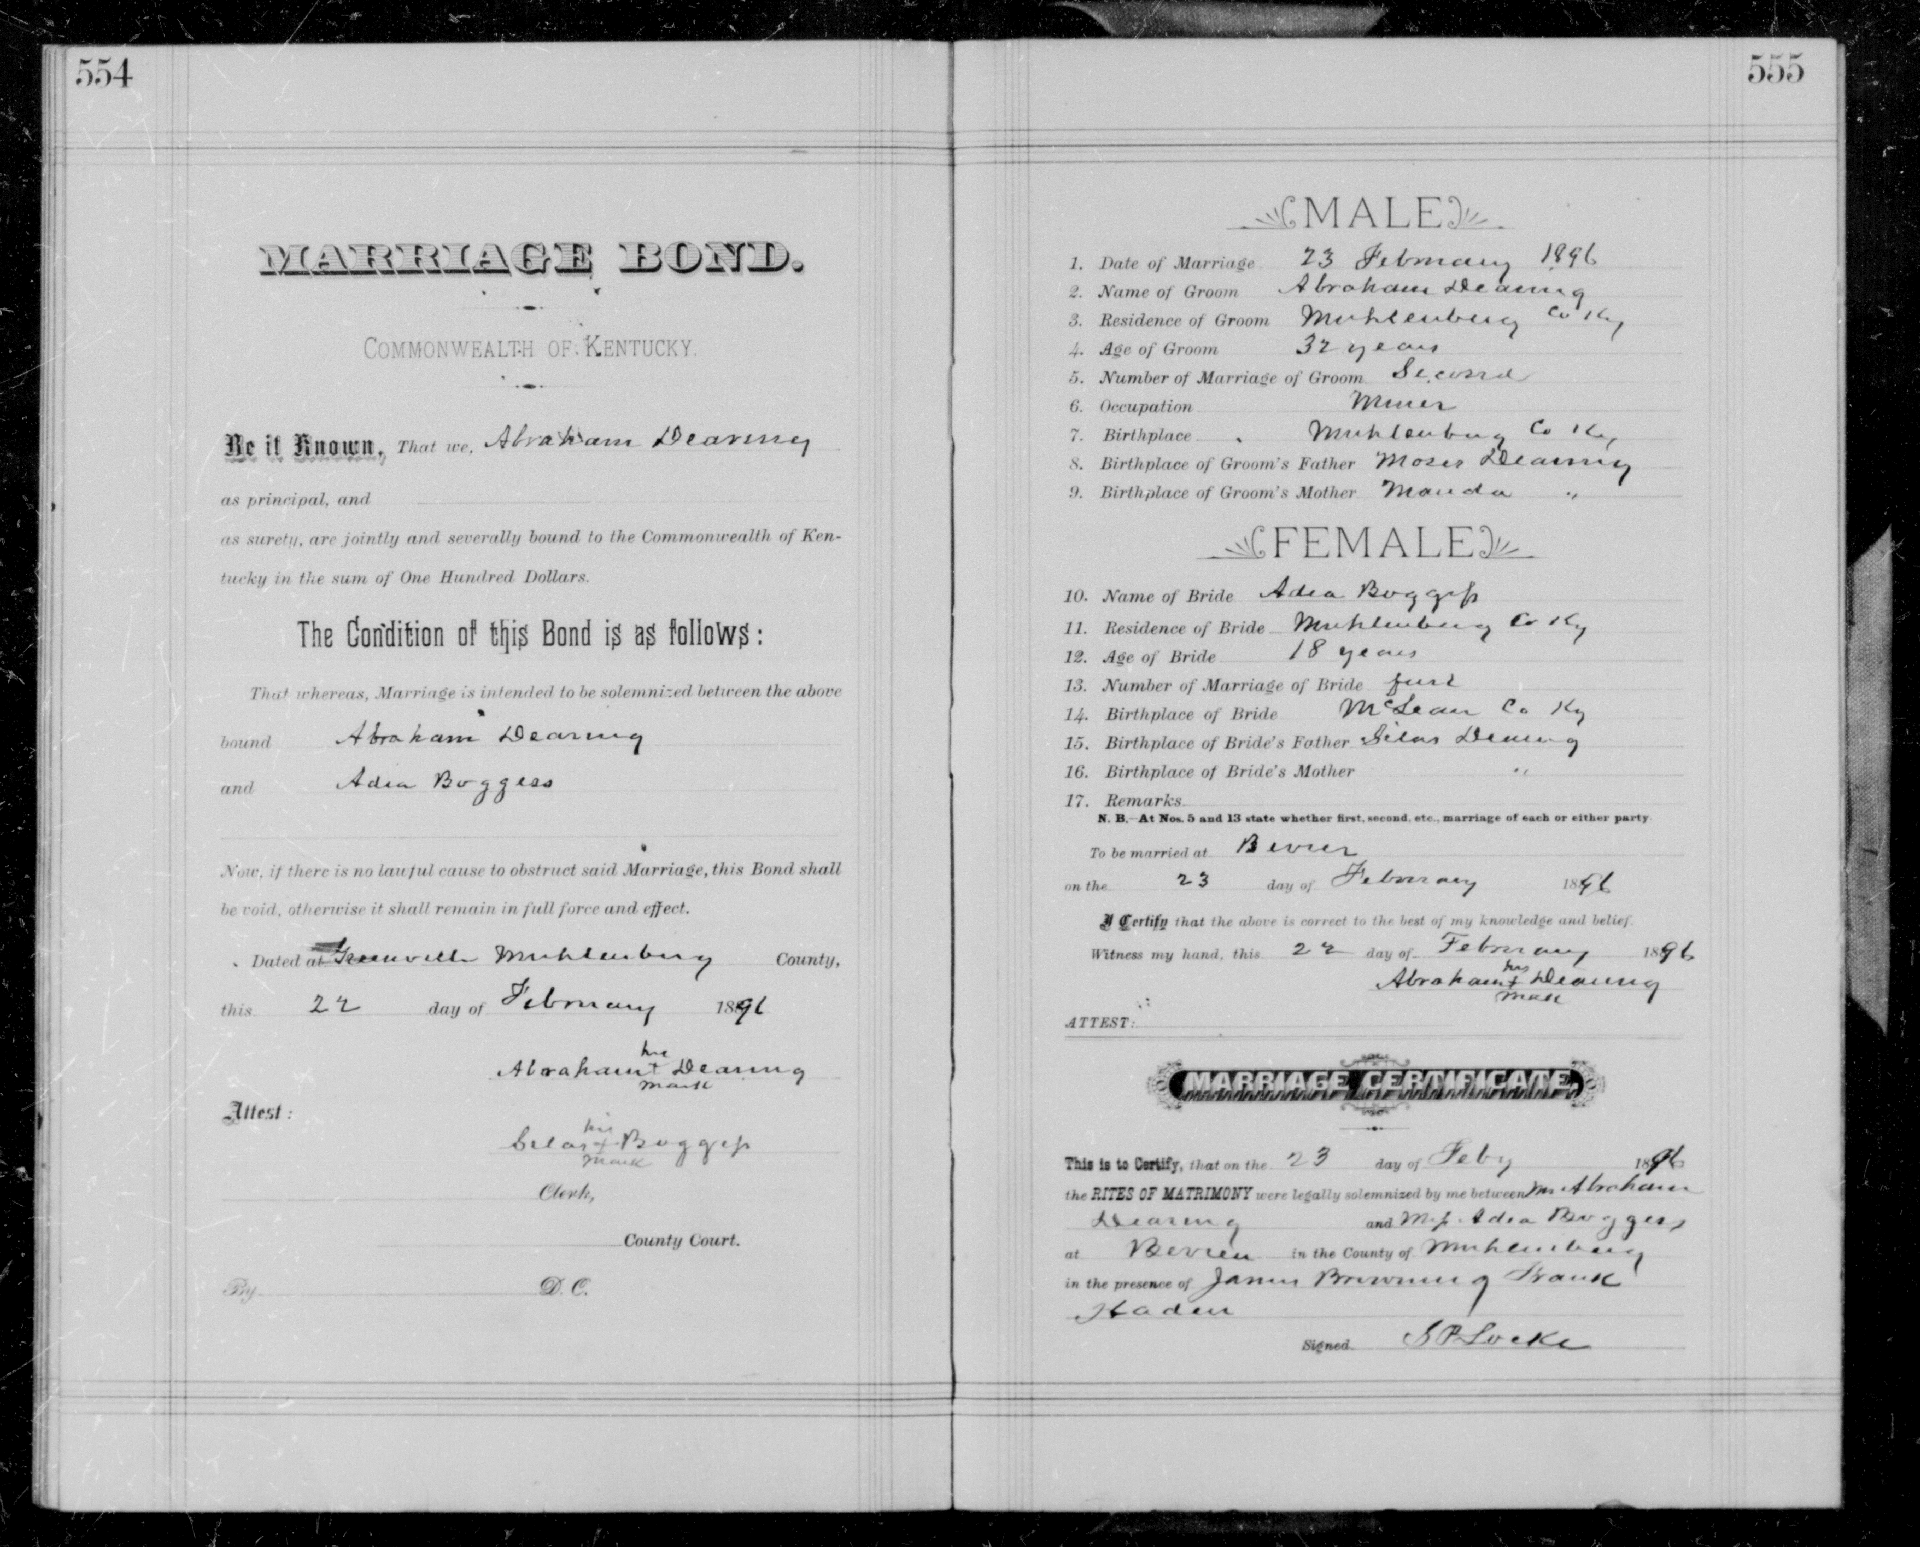 554
MARRIAGE BOND.
COMMONWEALTH OF KENTUCKY.
Be it Known, That we, Abraham Dearing
as principal, and
as surety, are jointly and severally bound to the Commonwealth of Ken-
tucky in the sum of One Hundred Dollars.
The Condition of this Bond is as follows:
That whereas, Marriage is intended to be solemnized between the above
bound Abraham Dearing
and Adea Boggess
Now, if there is no lawful cause to obstruct said Marriage, this Bond shall
be void, otherwise it shall remain in full force and effect.
Dated at Greenville Muhlenberg County,
this 22 day of February 1896
his
Abraham + Dearing
mark
Attest:
his
Silas + Boggess
mark
Clerk,
County Court.
By D. C.
555
MALE
1. Date of Marriage 23 February 1896
2. Name of Groom Abraham Dearing
3. Residence of Groom Muhlenberg Co Ky
4. Age of Groom 32 years
5. Number of Marriage of Groom Second
6. Occupation Miner
7. Birthplace Muhlenberg Co Ky
8. Birthplace of Groom's Father Moses Dearing
9. Birthplace of Groom's Mother Manda "
FEMALE
10. Name of Bride Adea Boggess
11. Residence of Bride Muhlenberg Co Ky
12. Age of Bride 18 years
13. Number of Marriage of Bride first
14. Birthplace of Bride McLean Co Ky
15. Birthplace of Bride's Father Silas Dearing
16. Birthplace of Bride's Mother "
17. Remarks
N. B.—At Nos. 5 and 13 state whether first, second, etc., marriage of each or either party
To be married at Bevier
on the 23 day of February 1896
I Certify that the above is correct to the best of my knowledge and belief.
Witness my hand, this 22 day of February 1896
his
Abraham + Dearing
mark
ATTEST:
MARRIAGE CERTIFICATE
This is to Certify, that on the 23 day of Feby 1896
the RITES OF MATRIMONY were legally solemnized by me between Mr Abraham
Dearing and Miss Adea Boggess
at Bevier in the County of Muhlenberg
in the presence of James Browning Frank
Haden
Signed S P Locke